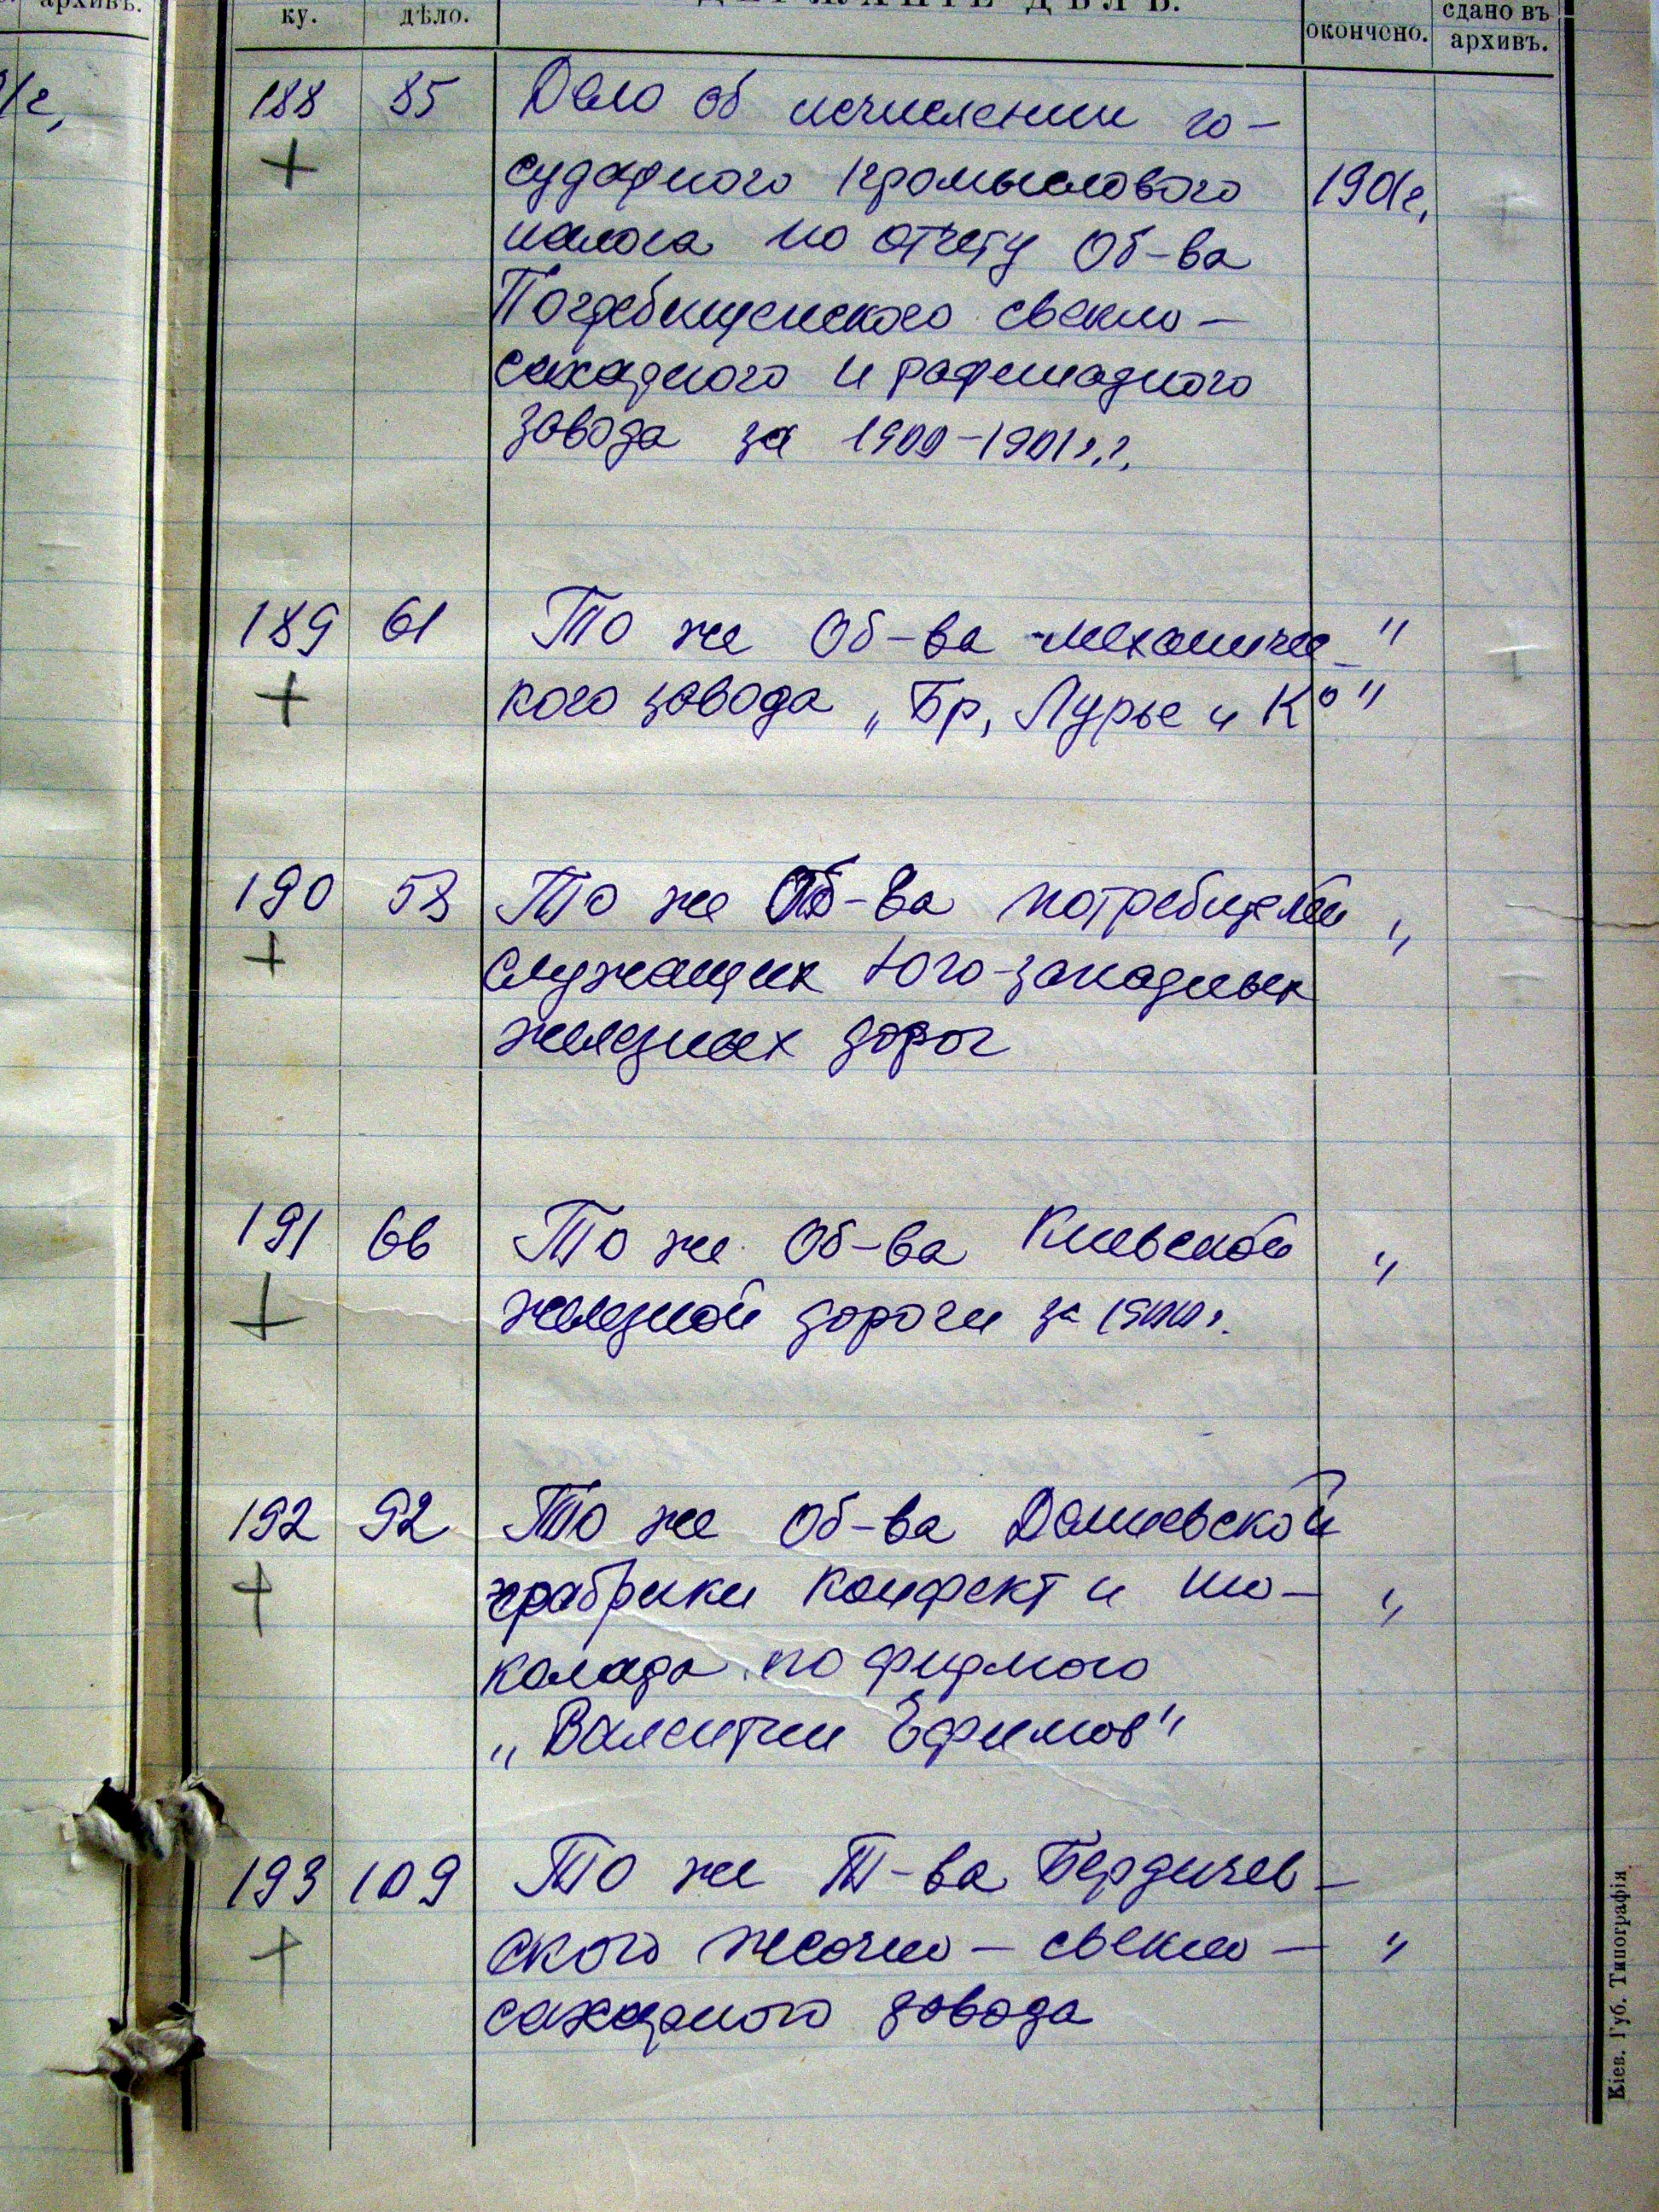 архивъ.
ку. дѣло. ДЕРЖАНІЕ ДѢЛЪ. окончено. сдано въ архивъ.
188 85 Дело об исчислении го-
+ сударного промыслового 1901г.
налога по отчету Об-ва
Погребищенского свекло-
сахарного и рафинадного
завода за 1900-1901г.г.
189 61 То же Об-ва механичес- "
+ кого завода „Бр. Лурье и Ко"
190 53 То же Об-ва потребителей "
+ служащих Юго-западных
железных дорог
191 66 То же Об-ва Киевской "
+ железной дороги за 1900г.
192 92 То же Об-ва Демиевской
+ фабрики конфект и шо- "
колада по фирмою
„Валентин Ефимов"
193 109 То же Т-ва Бердичев-
+ ского песочно-свекло- "
сахарного завода
Кіев. Губ. Типографія